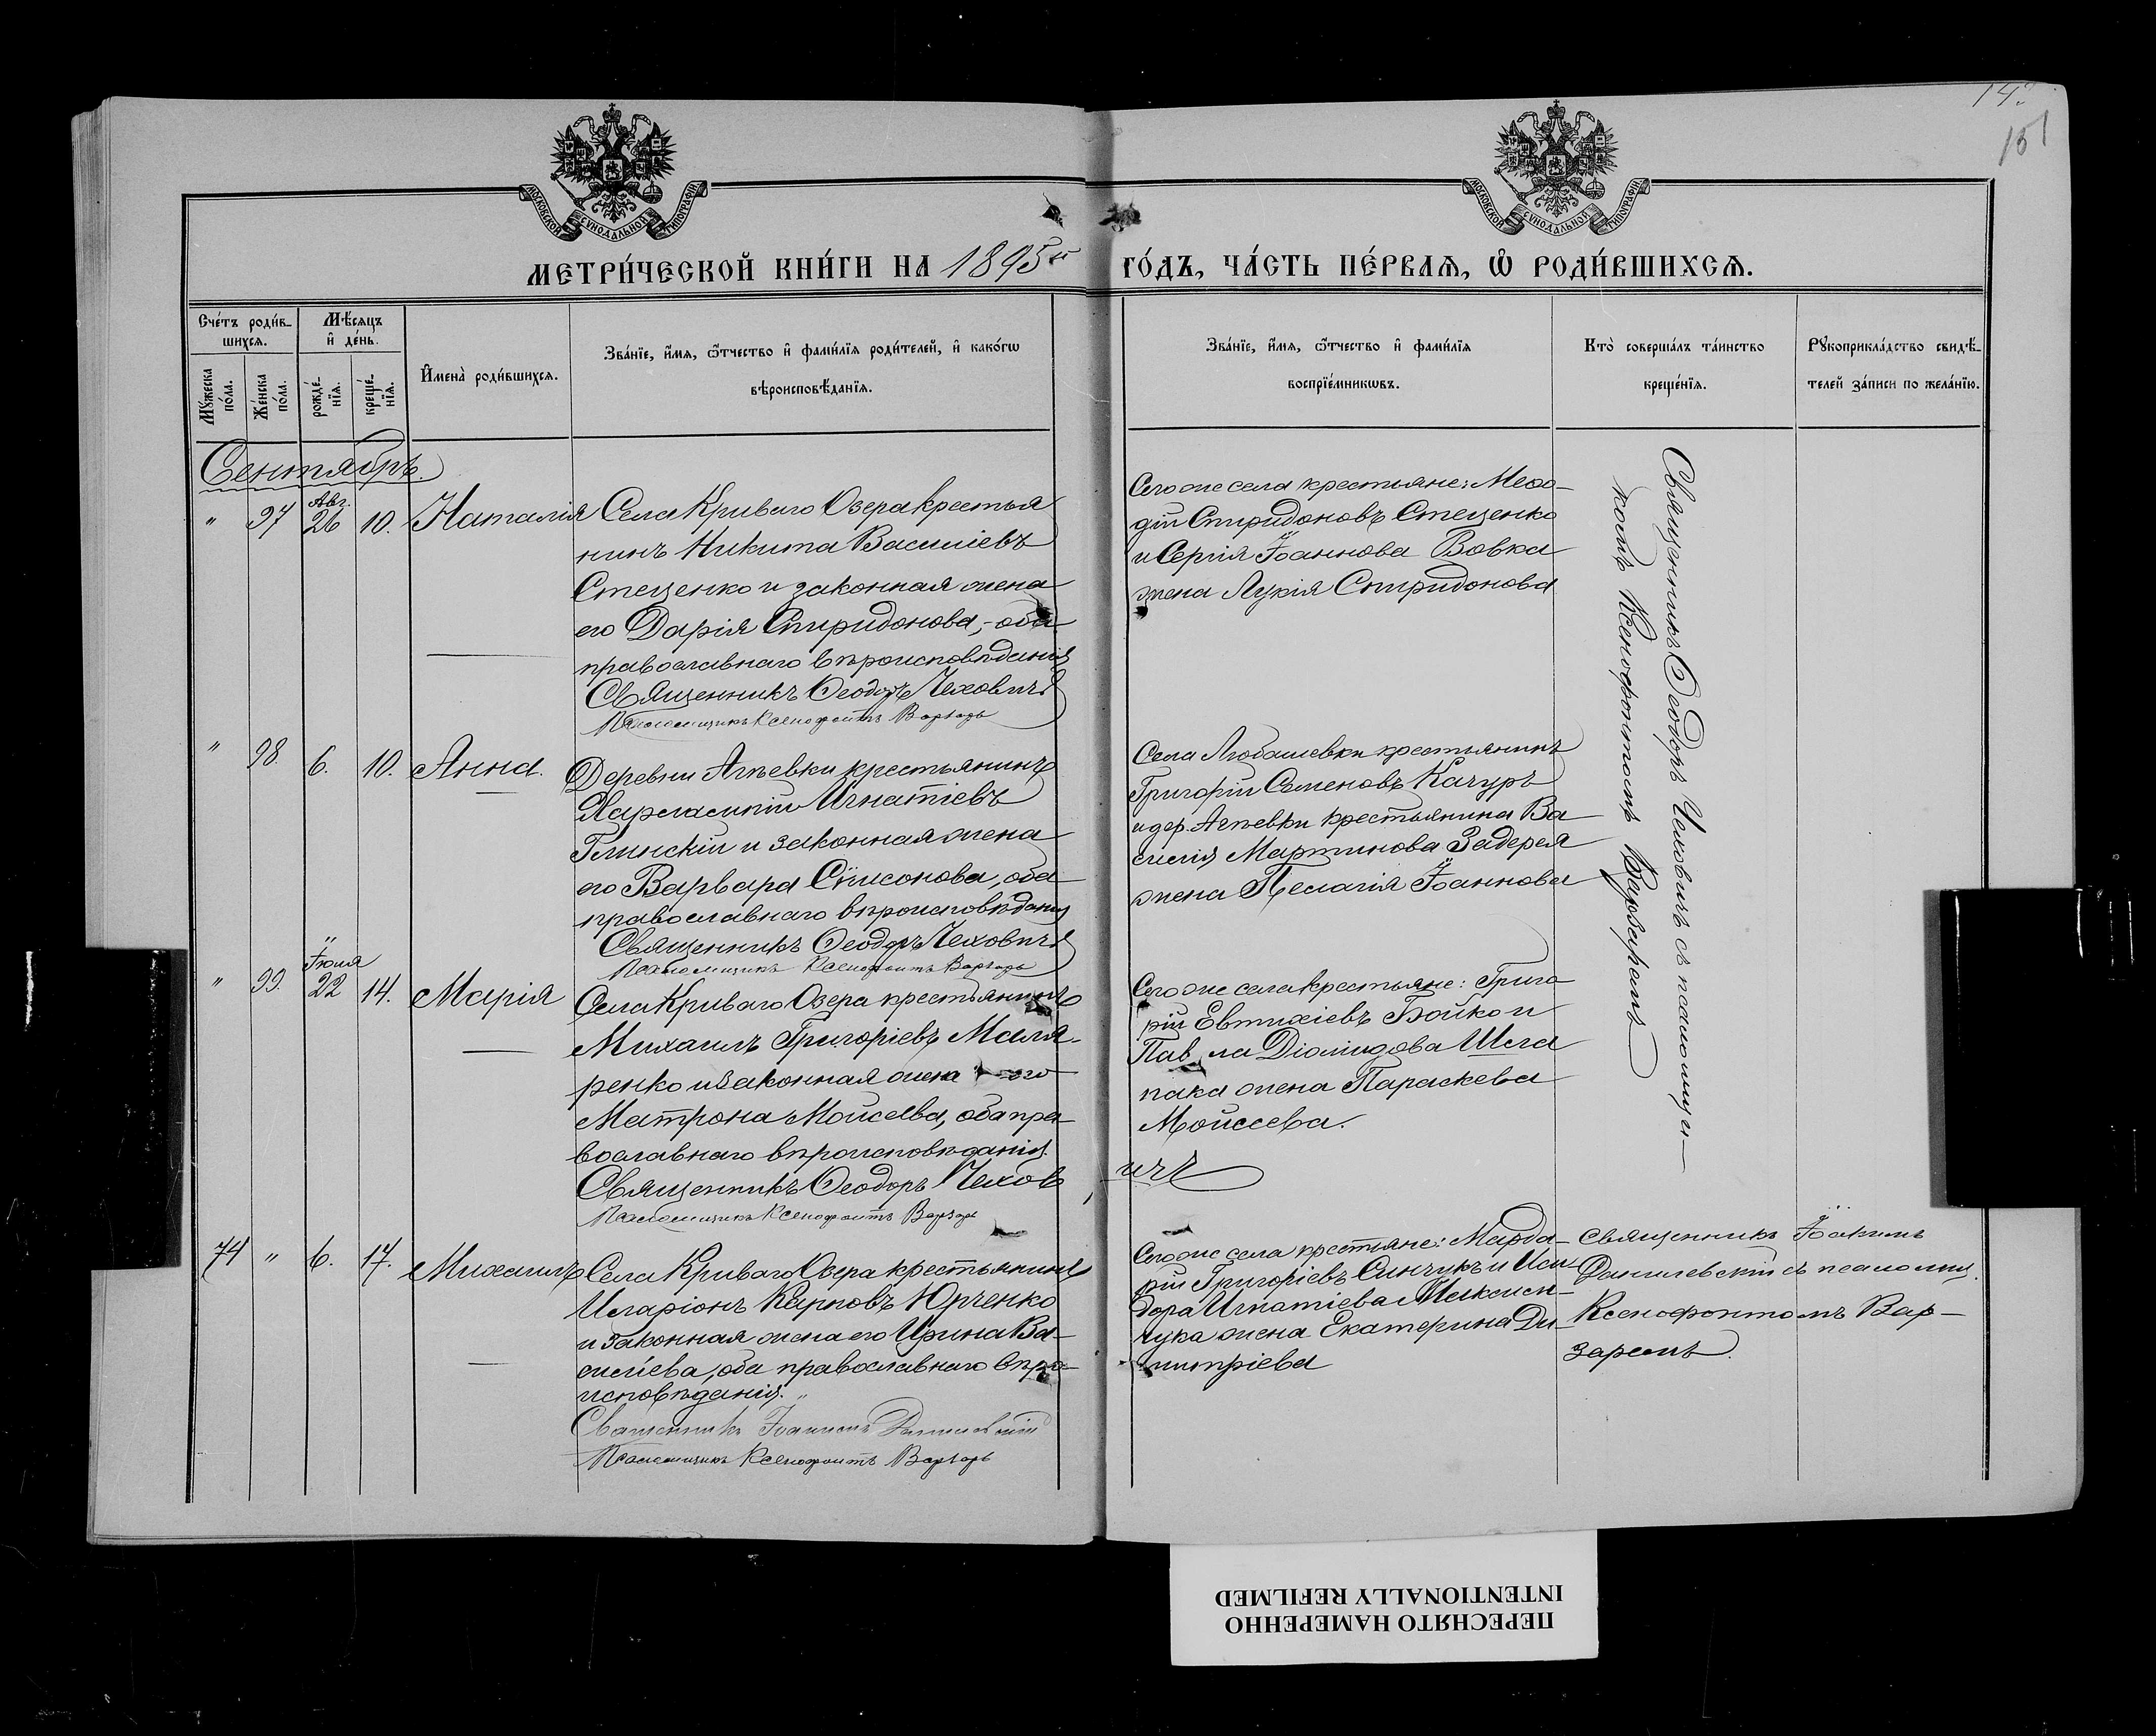 142
151
МОСКОВСКОЙ СѴНОДАЛЬНОЙ ТИПОГРАФІИ.
МОСКОВСКОЙ СѴНОДАЛЬНОЙ ТИПОГРАФІИ.
МЕТРИ́ЧЕСКОЙ КНИ́ГИ НА 1895й ГО́ДЪ, ЧА́СТЬ ПЕ́РВАѦ, Ѽ РОДИ́ВШИХСѦ.
Сче́тъ роди́в-
шихсѧ.
Мѣ́сѧцъ
и҆ де́нь.
Мꙋ́жеска
по́ла.
Же́нска
по́ла.
рожде́-
нїѧ.
креще́-
нїѧ.
И҆мена̀ роди́вшихсѧ.
Зва́нїе, и҆́мѧ, ѻ҆́тчество и҆ фами́лїѧ роди́телей, и҆ како́гѡ
вѣроисповѣ́данїѧ.
Зва́нїе, и҆́мѧ, ѻ҆́тчество и҆ фами́лїѧ
воспрїе́мникѡвъ.
Кто̀ соверша́лъ та́инство
креще́нїѧ.
Рꙋкоприкла́дство свидѣ́-
телей за́писи по жела́нїю.
Сентябрь.
" 97 Авг. 26 10. Наталія
Села Криваго Озера крестья
нинъ Никита Василіевъ
Стеценко и законная жена
его Дарія Спиридонова,- оба
православнаго вѣроисповѣданія
Священникъ Ѳеодоръ Чеховичъ
Псаломщикъ Ксенофонтъ Варзарь
Сего же села крестьяне: Меѳо-
дій Спиридоновъ Стеценко
и Сергія Іоаннова Вовка
жена Лукія Спиридонова
Священникъ Ѳеодоръ Чеховичъ съ псаломщи-
комъ Ксенофонтомъ Варзаремъ
" 98 6. 10. Анна.
Деревни Агѣевки крестьянинъ
Харлампій Игнатіевъ
Глинскій и законная жена
его Варвара Самсонова, оба
православнаго вѣроисповѣданія
Священникъ Ѳеодоръ Чеховичъ
Псаломщикъ Ксенофонтъ Варзарь
Села Любашевки крестьянинъ
Григорій Семеновъ Качуръ
и дер. Агѣевки крестьянина Ва
силія Мартинова Задерея
жена Пелагія Іоаннова
" 99. Іюля 22 14. Марія
Села Криваго Озера крестьянинъ
Михаилъ Григоріевъ Маля-
ренко и законная жена его
Матрона Моисеева, оба пра-
вославнаго вѣроисповѣданія.
Священникъ Ѳеодоръ Чехов
ичъ
Псаломщикъ Ксенофонтъ Варзарь
Сего же села крестьяне: Григо
рій Евтихіевъ Бойко и
Пав ла Діомидова Шла
пака жена Параскева
Мойсеева.
74 " 6. 17. Михаилъ
Села Криваго Озера крестьянинъ
Иларіонъ Карповъ Юрченко
и законная жена его Ирина Ва-
силіева, оба православнаго вѣро-
исповѣданія.
Священникъ Іоакимъ Данилевскій
Псаломщикъ Ксенофонтъ Варзарь
Сего же села крестьяне: Марда-
рій Григоріевъ Синчукъ и Иси
дора Игнатіева Максим-
чука жена Екатерина Ди-
митріева
Священникъ Іоакимъ
Данилевскій съ псаломщ.
Ксенофонтомъ Вар-
заремъ.
ПЕРЕСНЯТО НАМЕРЕННО
INTENTIONALLY REFILMED